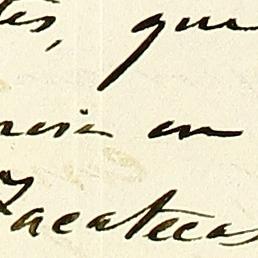 tes, que
en
Zacatecas